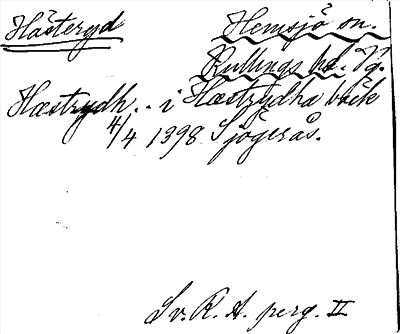 Hästeryd
Hemsjö sn.
Kullings hd. Vg.
Hæstrydh.. i Hæstrydha bäck
4/4 1398 Sjögerås.
Sv. R. A. perg. II